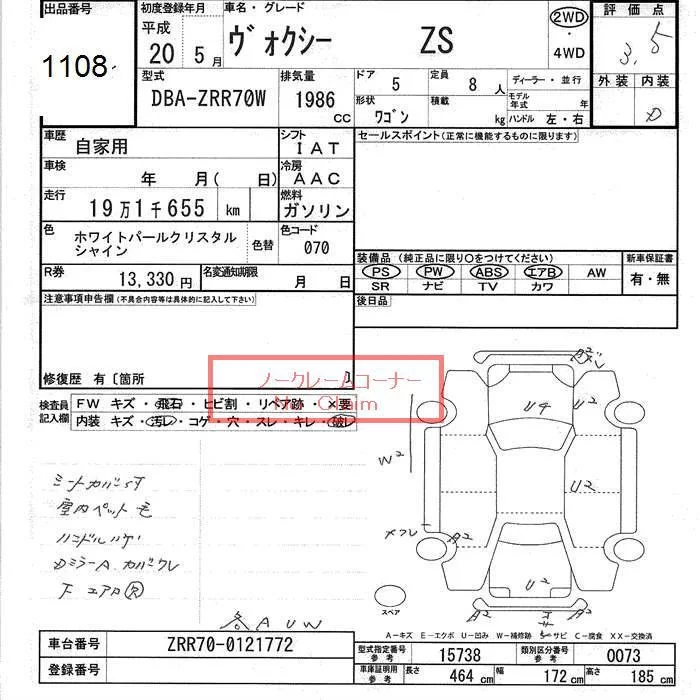 出品番号
1108
初度登録年月
平成
20 5月
車名・グレード
ヴォクシー ZS
2WD
・
4WD
評価点
3.5
外装 内装
D
型式
DBA-ZRR70W
排気量
1986
CC
ドア 5
定員 8人
ディーラー・並行
形状 ワゴン
積載 kg
モデル年式 年
ハンドル 左・右
車歴
自家用
シフト
IAT
セールスポイント(正常に機能するものに限ります)
車検
年 月( 日)
冷房
AAC
走行
19万1千655 km
燃料
ガソリン
色
ホワイトパールクリスタル
シャイン
色替
色コード
070
装備品(純正品に限り○をつけてください)
PS PW ABS エアB AW
SR ナビ TV カワ
新車保証書
有・無
R券
13,330円
名変通知期限
月 日
後日品
注意事項申告欄(不具合内容等は具体的に記入して下さい)
修復歴 有〔箇所 〕
ノークレームコーナー
No Claim
検査員
記入欄
FW キズ・飛石・ヒビ割・リペア跡・×要
内装 キズ・汚レ・コゲ・穴・スレ・キレ・破レ
シートカバー
室内ペット毛
ハンドルハゲ
DミラーA カバークレ
F エアロ
各AUW
U4
U2
W2
U2
A2
A2
U2
A2
A2
スペア
A-キズ E-エクボ U-凹み W-補修跡 S-サビ C-腐食 XX-交換済
車台番号
ZRR70-0121772
登録番号
型式指定番号
参考
15738
類別区分番号
参考
0073
車庫証明用
参考
長さ 464cm
幅 172cm
高さ 185cm